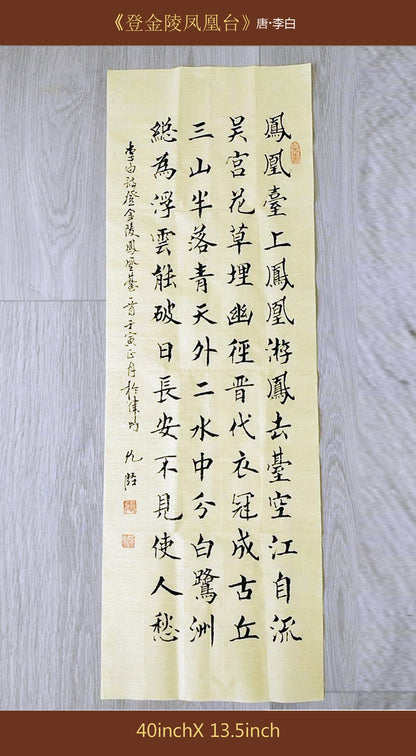 《登金陵凤凰台》唐·李白
鳳凰臺上鳳凰游鳳去臺空江自流
吴宮花草埋幽徑晋代衣冠成古丘
三山半落青天外二水中分白鷺洲
總為浮雲能破日長安不見使人愁
李白詩登金陵鳳凰臺一首壬寅正月於
40inchX 13.5inch